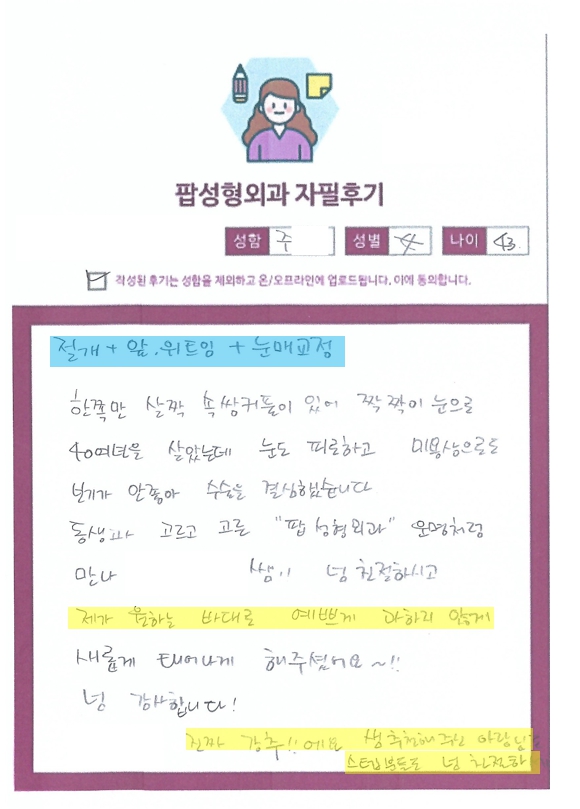 팝성형외과 자필후기
성함 주 성별 여 나이 43
작성된 후기는 성함을 제외하고 온/오프라인에 업로드됩니다. 이에 동의합니다.
절개 + 앞.뒤트임 + 눈매교정
한쪽만 살짝 속쌍커풀이 있어 짝짝이 눈으로
40여년을 살았는데 눈도 피로하고 미용상으로도
보기가 안좋아 수술을 결심했습니다
동생과 고르고 고른 "팝성형외과" 운명처럼
만나 쌤이 넘 친절하시고
제가 원하는 바대로 예쁘게 과하지 않게
새롭게 태어나게 해주셨어요~!!
넘 감사합니다!
진짜 강추!!에요
넘 친절하